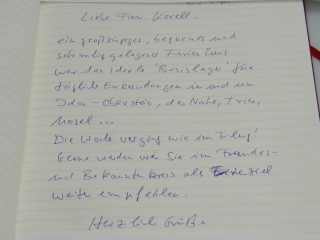 Liebe Frau Korell,
ein großzügiger, bequemes und
sehr ruhig gelegenes Ferienhaus
war das ideale 'Basislager' für
tägliche Erkundungen in und um
Idar-Oberstein, der Nahe, Trier,
Mosel ...
Die Woche verging wie im Flug!
Gerne werden wir Sie im Freundes-
und Bekanntenkreis als Ferienziel
weiter empfehlen.
Herzliche Grüße